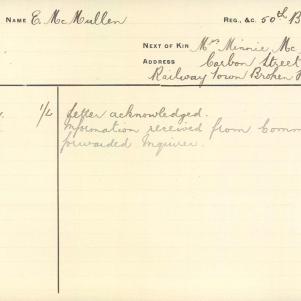 NAME E. McMullen REG., &C. 50th B
NEXT OF KIN Mrs Minnie Mc
ADDRESS Carbon Street
Railway Town Broken
1/2 letter acknowledged.
Information received from Comm
forwarded Inquirer.